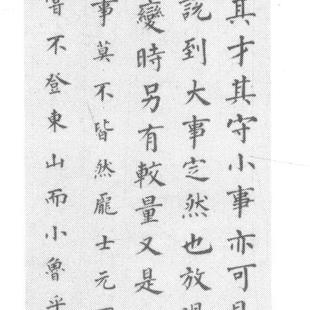 其才其守小事亦可
說到大事定然也放
變時另有較量又是
事莫不皆然龐士元
不登東山而小魯